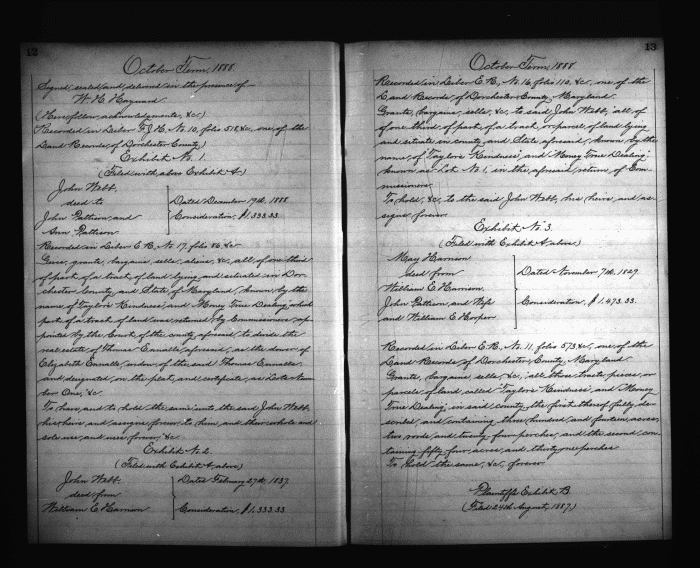 12
October Term, 1888
Signed, sealed and delivered in the presence of—
W. H. Hayward
(Here follow acknowledgements, &c)
Recorded in Liber F. J. H. No. 10, folio 518, &c, one of the
Land Records of Dorchester County.)
Exhibit No. 1.
(Filed with above Exhibit A.)
John Webb,
deed to
John Pattison, and
Ann Pattison
Dated December 19th, 1838
Consideration, $1,333.33
Recorded in Liber E. R. No. 17, folio 86, &c
Give, grants, bargains, sells, aliens, &c, all of one third
of part of a tract of land lying and situated in Dor-
chester County and State of Maryland, known by the
name of Taylor's Kindness, and Money True Dealing, which
part of a tract of land was returned by Commissioners ap-
pointed by the Court of the county aforesaid, to divide the
real estate of Thomas Ennalls, aforesaid, as the dower of
Elizabeth Ennalls, widow of the said Thomas Ennalls
and designated on the plat, and certificate, as Lot Num-
ber One, &c
To have and to hold the same unto the said John Webb,
his heirs and assigns forever to him and their whole and
sole use, and uses forever, &c
Exhibit No. 2.
(Filed with Exhibit A, above)
John Webb,
deed from
William E. Harrison
Dated February 27th, 1837
Consideration, $1,333.33
13
October Term, 1888
Recorded in Liber E. R., No. 16, folio 110, &c, one of the
Land Records of Dorchester County, Maryland
Grants, bargains, sells, &c, to said John Webb, "all of
of one third, of part, of a tract, or parcel, of land lying
and situate in county and State aforesaid, known by the
name of Taylor's Kindness' and Money True Dealing,'
known as Lot No. 1, in the aforesaid, return of Com-
missioners.
To hold, &c, to the said John Webb, his heirs, and as-
signs forever.
Exhibit No. 3.
(Filed with Exhibit A, above)
Mary Harrison
deed from
William E. Harrison,
John Pattison, and Wife
and William E. Hooper
Dated November 7th, 1829
Consideration, $1,473.33.
Recorded in Liber E. R., No. 11, folio 573, &c, one of the
Land Records of Dorchester County, Maryland
Grants, bargains, sells, &c, "all those tracts, pieces, or
parcels of land called Taylor's Kindness' and Money
True Dealing,' in said county, the first thereof fully des-
cribed, and containing three hundred, and fourteen, acres,
two roods and twenty four perches, and the second con-
taining fifty-four acres, and thirty nine perches
To Hold the same, &c, forever.
Plaintiffs Exhibit B.
(Filed 24th August, 1887.)